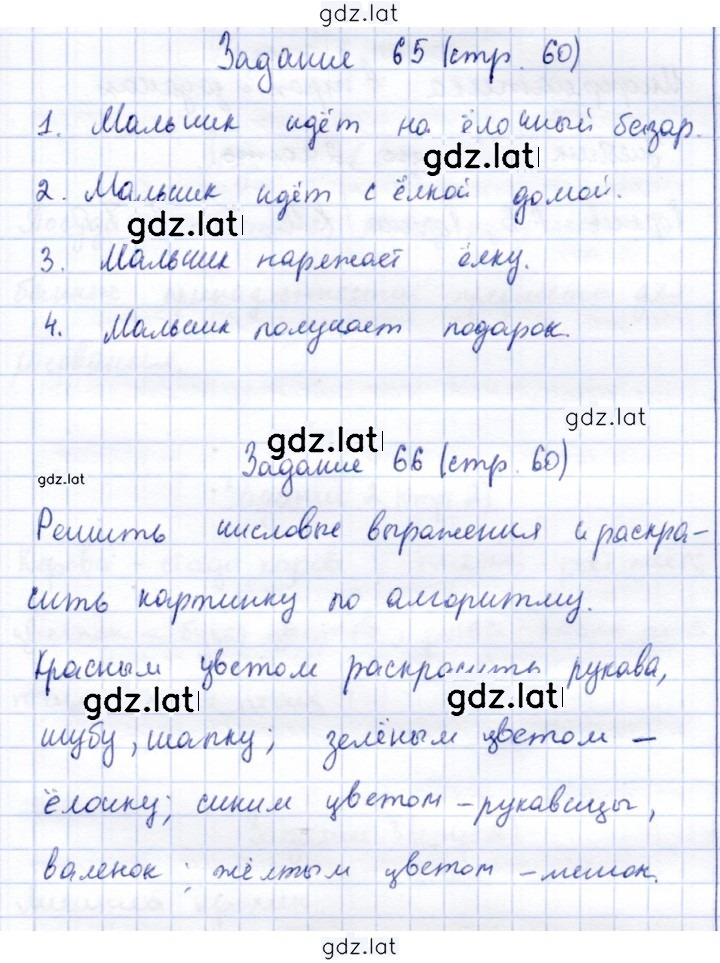 gdz.lat
Задание 65 (стр. 60)
1. Мальчик идёт на ёлочный базар.
gdz.lat
2. Мальчик идёт с ёлкой домой.
gdz.lat
3. Мальчик наряжает ёлку.
4. Мальчик получает подарок.
gdz.lat
gdz.lat
Задание 66 (стр. 60)
gdz.lat
Решить числовые выражения и раскра-
сить картинку по алгоритму.
Красным цветом раскрасить рукава,
gdz.lat gdz.lat
шубу, шапку; зелёным цветом –
ёлочку; синим цветом – рукавицы,
валенок; жёлтым цветом – мешок.
gdz.lat